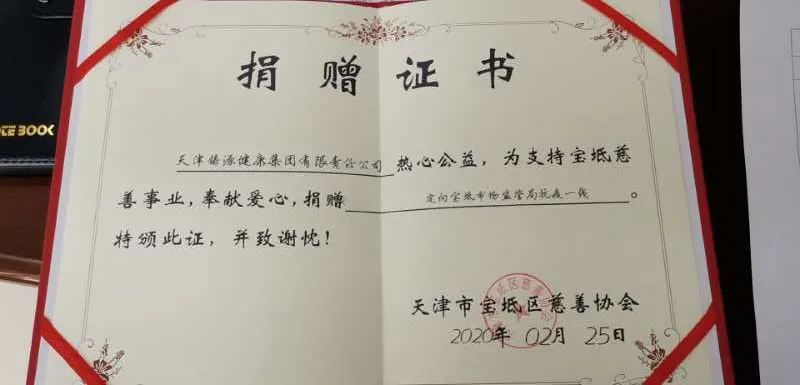 OTE BOOK
捐赠证书
天津臻源健康集团有限责任公司热心公益，为支持宝坻慈
善事业，奉献爱心，捐赠 定向宝坻市场监管局抗疫一线。
特颁此证，并致谢忱！
天津市宝坻区慈善协会
2020年 02月 25日